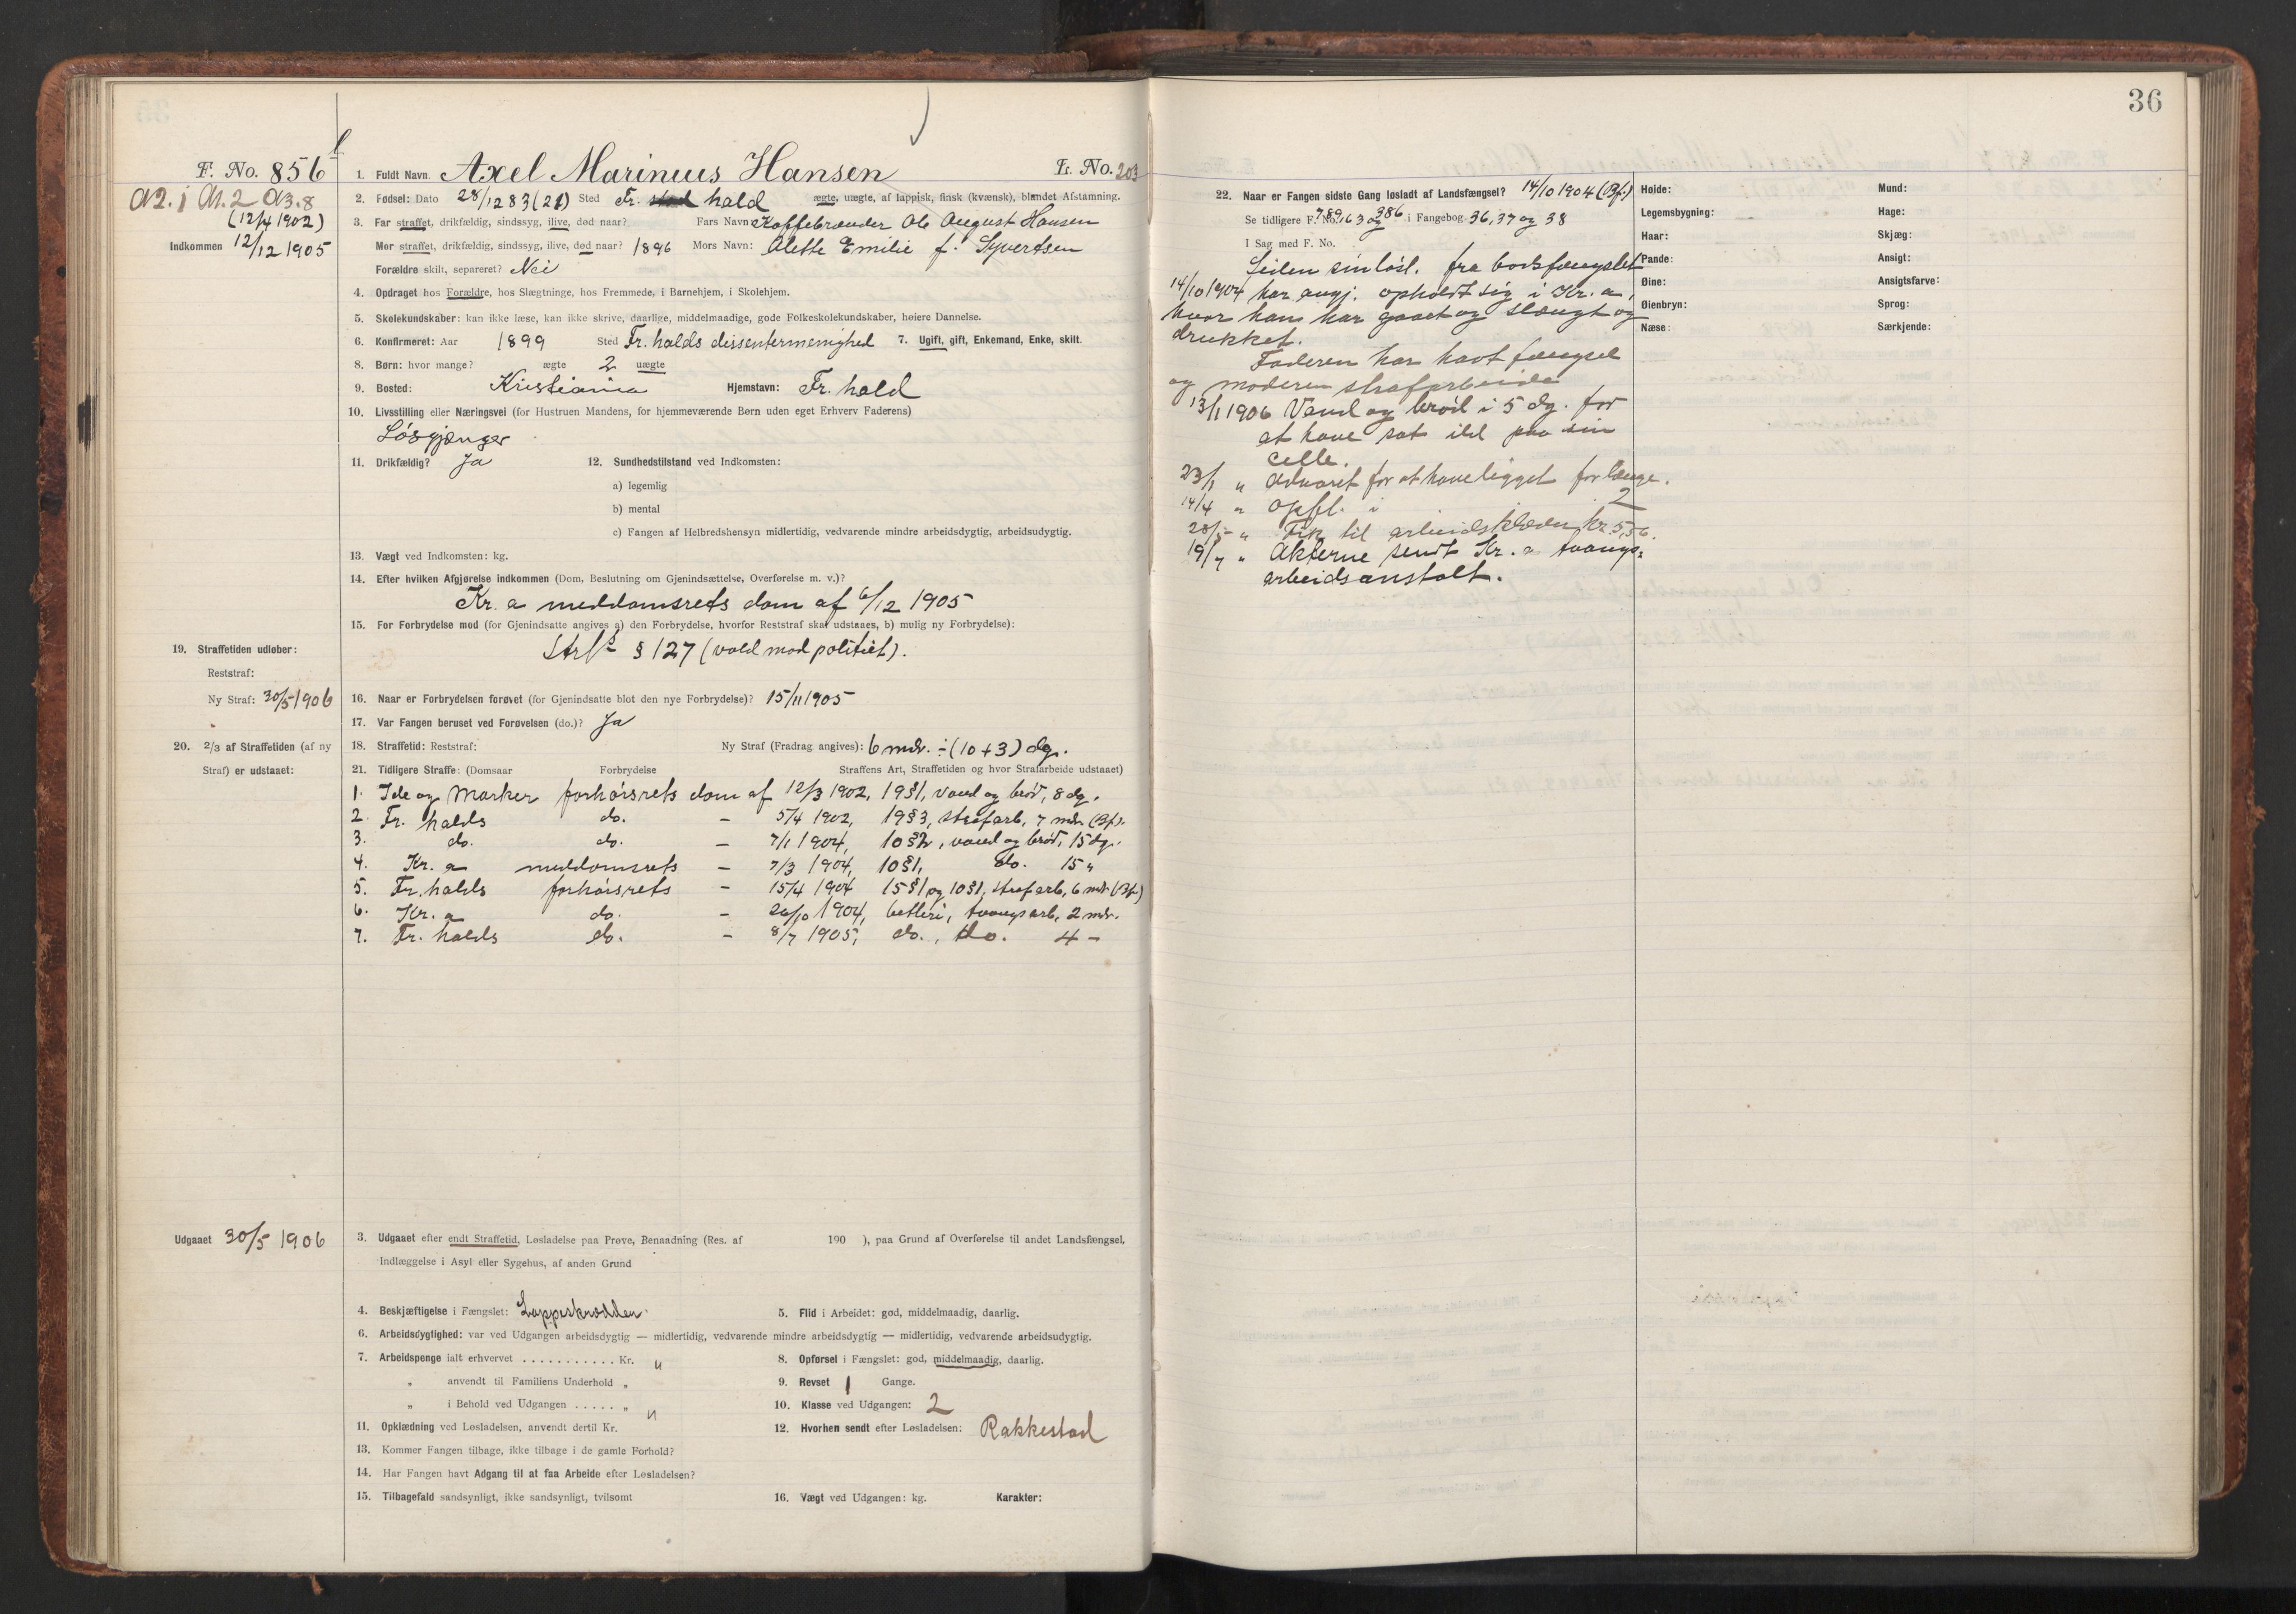 36
F. No. 856
1. Fuldt Navn. Axel Marinius Hansen
L. No. 203
(12/4 1902)
Indkommen 12/12 1905
2. Fødsel: Dato 28/12 83 (21) Sted Fr. hald ægte, uægte, af lappisk, finsk (kvænsk), blandet Afstamning.
3. Far straffet, drikfældig, sindssyg, ilive, død naar? Fars Navn: Kaffebrænder Ole August Hansen
Mor straffet, drikfældig, sindssyg, ilive, død naar? 1896 Mors Navn: Olette Emilie f. Syvertsen
Forældre skilt, separeret? Nei
4. Opdraget hos Forældre, hos Slægtninge, hos Fremmede, i Barnehjem, i Skolehjem.
5. Skolekundskaber: kan ikke læse, kan ikke skrive, daarlige, middelmaadige, gode Folkeskolekundskaber, høiere Dannelse.
6. Konfirmeret: Aar 1899 Sted Fr. halds dissentermenighed 7. Ugift, gift, Enkemand, Enke, skilt.
8. Børn: hvor mange? ægte 2 uægte
9. Bosted: Kristiania Hjemstavn: Fr. hald
10. Livsstilling eller Næringsvei (for Hustruen Mandens, for hjemmeværende Børn uden eget Erhverv Faderens)
Løsgjænger
11. Drikfældig? Ja 12. Sundhedstilstand ved Indkomsten:
a) legemlig
b) mental
c) Fangen af Helbredshensyn midlertidig, vedvarende mindre arbeidsdygtig, arbeidsudygtig.
13. Vægt ved Indkomsten: kg.
14. Efter hvilken Afgjørelse indkommen (Dom, Beslutning om Gjenindsættelse, Overførelse m. v.)?
Kr. a meddomsrets dom af 6/12 1905
15. For Forbrydelse mod (for Gjenindsatte angives a) den Forbrydelse, hvorfor Reststraf skal udstaaes, b) mulig ny Forbrydelse):
§ 127 (vold mod politiet).
19. Straffetiden udløber:
Reststraf:
Ny Straf: 30/5 1906
16. Naar er Forbrydelsen forøvet (for Gjenindsatte blot den nye Forbrydelse)? 15/11 1905
17. Var Fangen beruset ved Forøvelsen (do.)? Ja
20. 2/3 af Straffetiden (af ny
Straf) er udstaaet:
18. Straffetid: Reststraf: Ny Straf (Fradrag angives): 6 mdr. ÷ (10 + 3) dg.
21. Tidligere Straffe: (Domsaar Forbrydelse Straffens Art, Straffetiden og hvor Strafarbeide udstaaet)
1. Ide og Marker forhørsrets dom af 12/3 1902, 19 § 1, vand og brød, 8 dg.
2. Fr. halds do. – 5/4 1902, 19 § 3, strafarb, 7 mdr (Bf).
3. do. do. – 7/1 1904, 10 § 2, vand og brød, 15 dg.
4. Kr. a meddomsrets – 7/3 1904, 10 § 1, do. 15 „
5. Fr. halds forhørsrets – 15/4 1904 15 § 1 og 10 § 1, strafarb, 6 mdr (Bf.)
6. Kr. a do. – 26/10 1904, betleri, tvangsarb, 2 mdr.
7. Fr. halds do. – 8/7 1905, do., do. 4 –
Udgaaet 30/5 1906
3. Udgaaet efter endt Straffetid, Løsladelse paa Prøve, Benaadning (Res. af 190 ), paa Grund af Overførelse til andet Landsfængsel,
Indlæggelse i Asyl eller Sygehus, af anden Grund
4. Beskjæftigelse i Fængslet: Lappeskrædder 5. Flid i Arbeidet: god, middelmaadig, daarlig.
6. Arbeidsdygtighed: var ved Udgangen arbeidsdygtig — midlertidig, vedvarende mindre arbeidsdygtig — midlertidig, vedvarende arbeidsudygtig.
7. Arbeidspenge ialt erhvervet . . . . . . . . . . . Kr. „ 8. Opførsel i Fængslet: god, middelmaadig, daarlig.
„ anvendt til Familiens Underhold „ 9. Revset 1 Gange.
„ i Behold ved Udgangen . . . . . „ „ 10. Klasse ved Udgangen: 2
11. Opklædning ved Løsladelsen, anvendt dertil Kr. 12. Hvorhen sendt efter Løsladelsen: Rakkestad
13. Kommer Fangen tilbage, ikke tilbage i de gamle Forhold?
14. Har Fangen havt Adgang til at faa Arbeide efter Løsladelsen?
15. Tilbagefald sandsynligt, ikke sandsynligt, tvilsomt 16. Vægt ved Udgangen: kg. Karakter:
22. Naar er Fangen sidste Gang løsladt af Landsfængsel? 14/10 1904 (Bf.)
Se tidligere F. No. 789, 163 og 386 i Fangebog 36, 37 og 38
I Sag med F. No.
Siden sin løsl. fra bodsfængslet
14/10 1904 har angj. opholdt sig i Kr. a,
hvor han har gaaet og slængt og
drukket.
Faderen har havt fængsel
og moderen strafarbeide
13/1 1906 Vand og brød i 5 dg. for
at have sat ild paa sin
celle.
23/1 „ Advaret for at have ligget for længe.
14/4 „ Opfl. i 2
28/5 „ Fik til arbeidsklæder kr. 5,56.
19/7 „ Akterne sendt Kr. a tvangs=
arbeidsanstalt.
Høide: Mund:
Legemsbygning: Hage:
Haar: Skjæg:
Pande: Ansigt:
Øine: Ansigtsfarve:
Øienbryn: Sprog:
Næse: Særkjende: